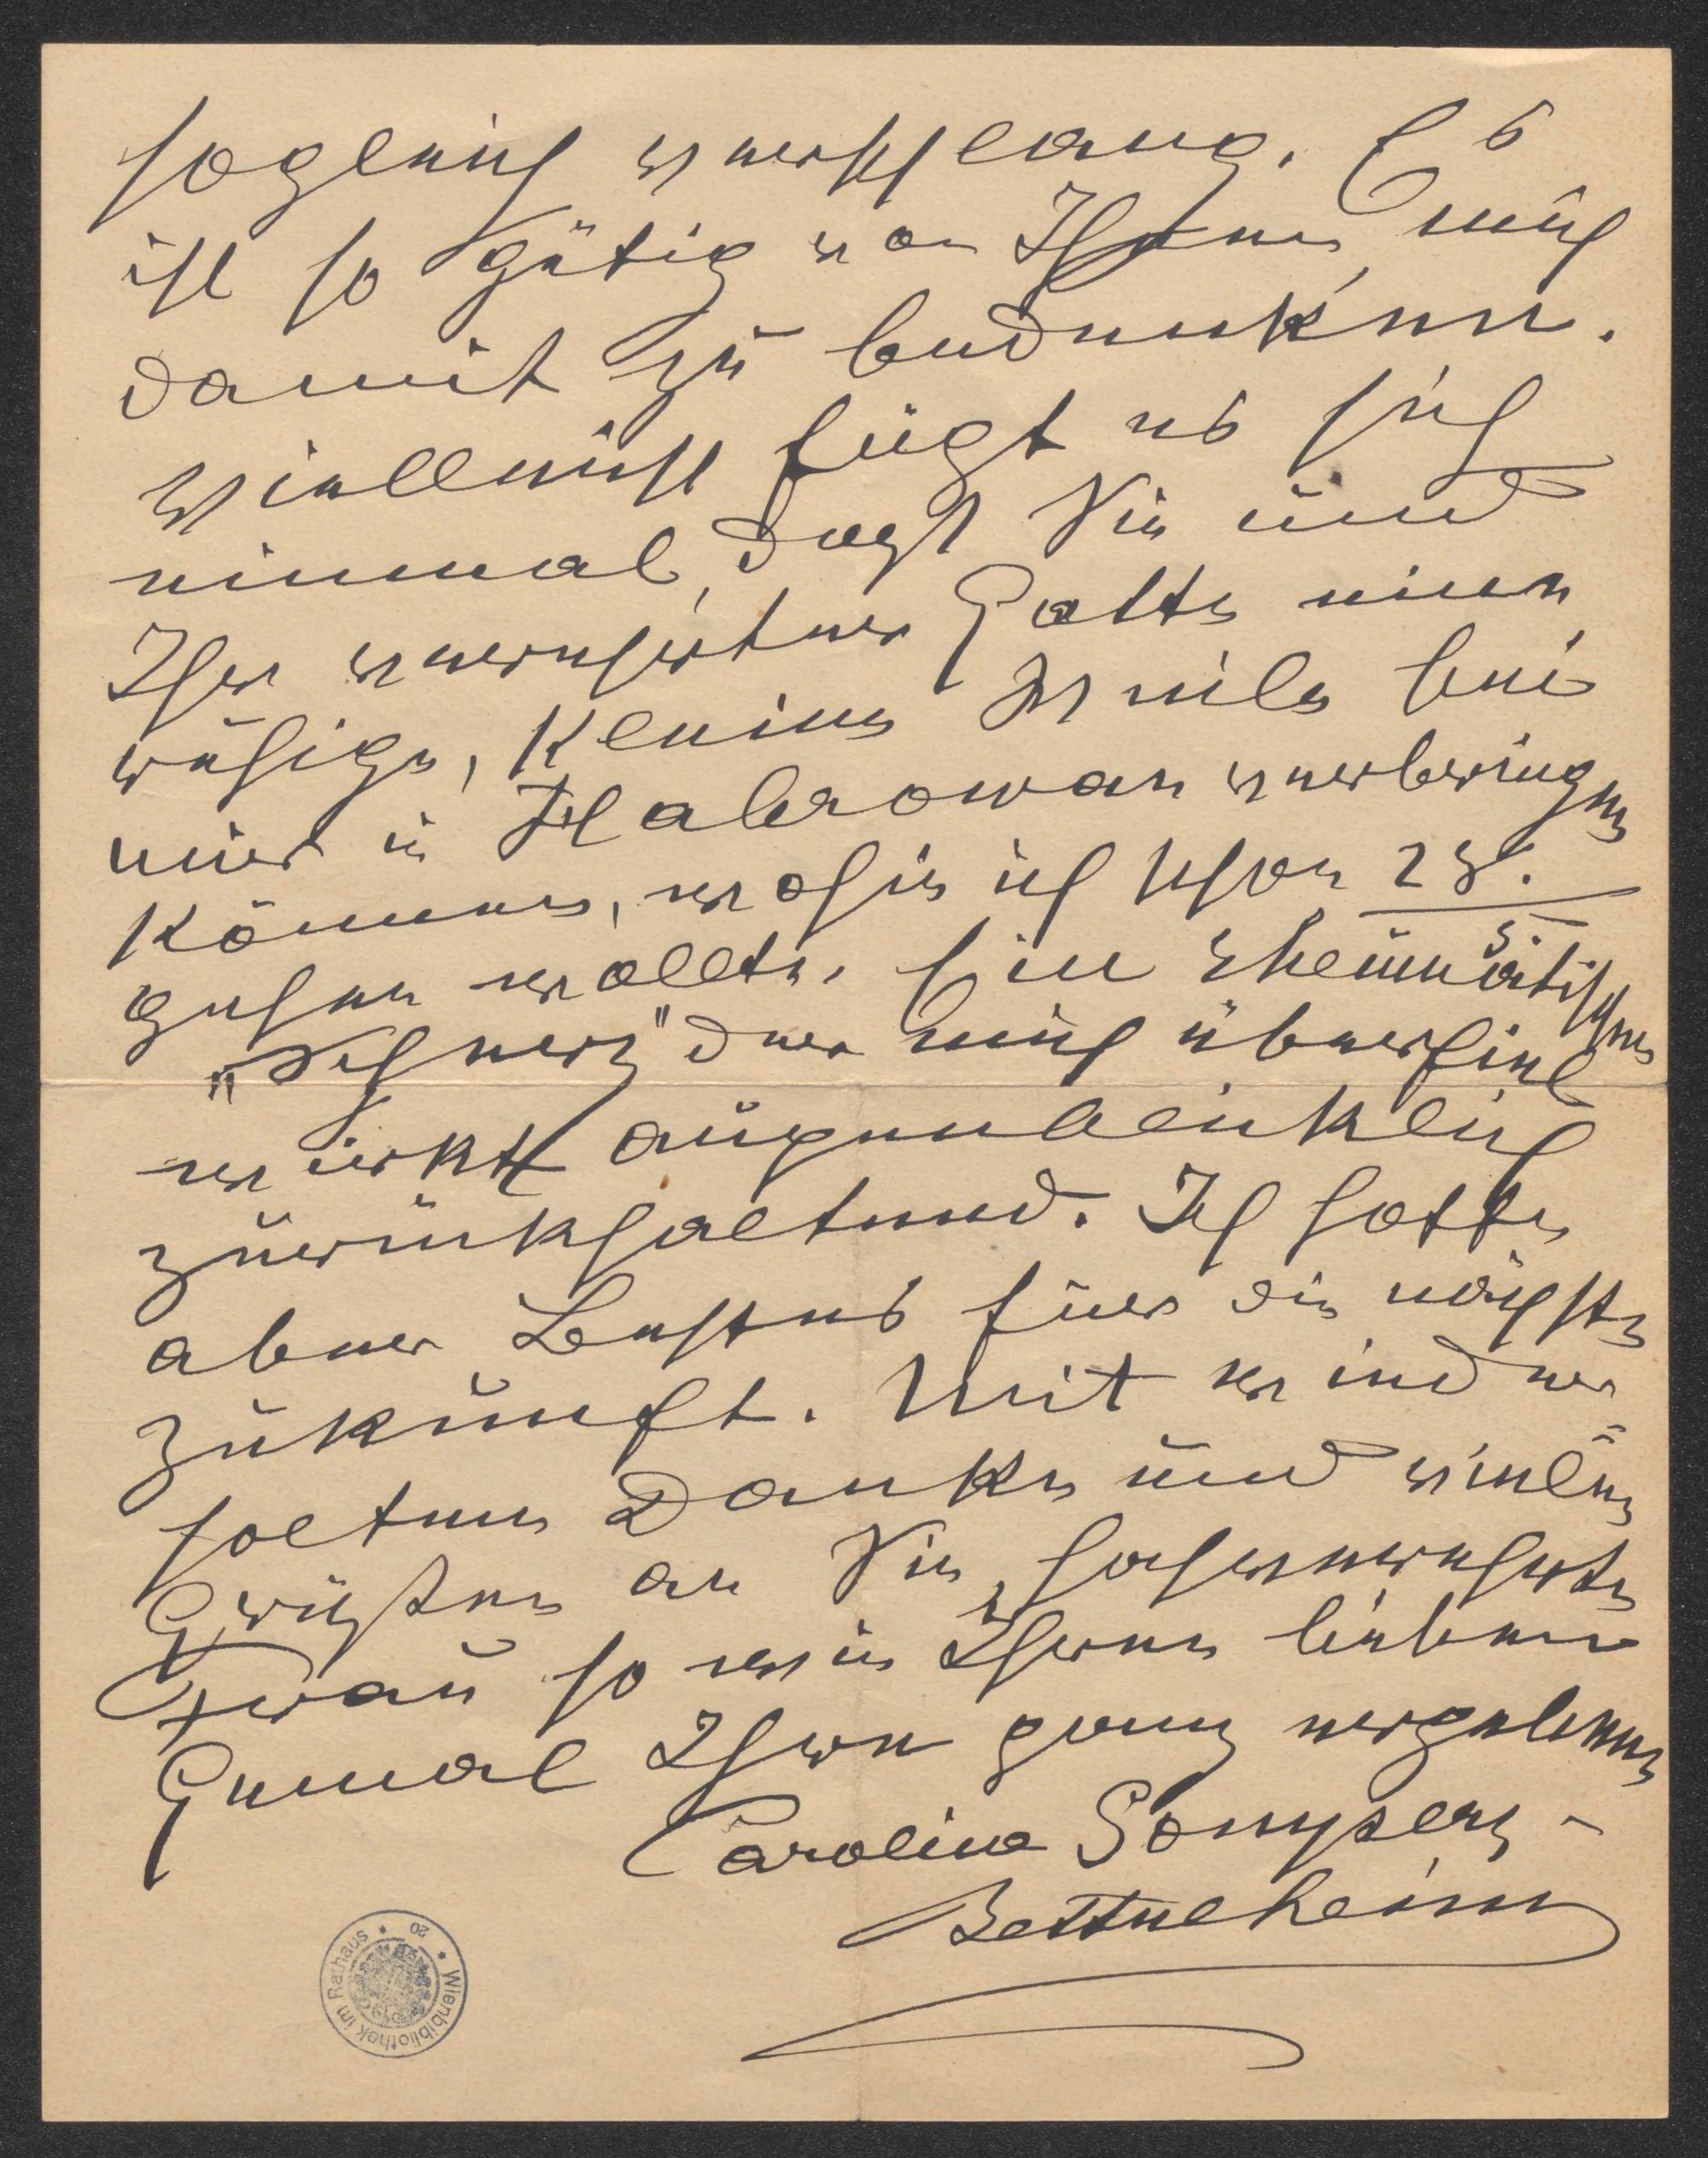 sogleich verschlang. Es
ist so gütig von Ihnen, mich
damit zu bedenken.
Vielleicht fügt es sich
einmal, daß Sie und
Ihr verehrter Gatte eine
ruhige, kleine Weile bei
mir in Habrowan verbringen
können, wohin ich schon 23.
gehen wollte. Ein rheumatischer
"Scherz" der mich überfiel
wirkt augenblicklich
zurückhaltend. Ich hoffe
aber Bestes für die nächste
Zukunft. Mit wieder-
holtem Danke und vielen
Grüßen an Sie, hochverehrte
Frau so wie Ihren lieben
Gemal Ihre ganz ergebene
Caroline Gomperz-
Bettelheim
Wienbibliothek im Rathaus